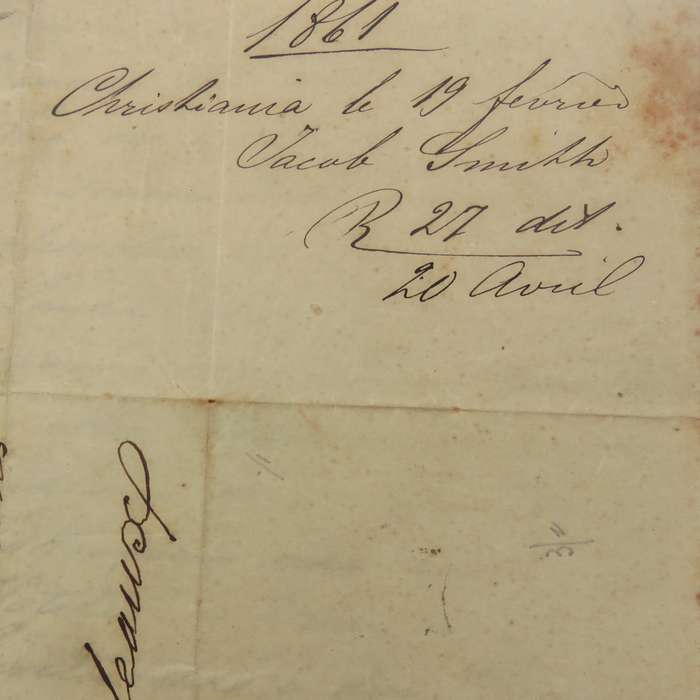 1861
Christiania le 19 février
Jacob Smith
R 27 dit.
20 Avril
3/"